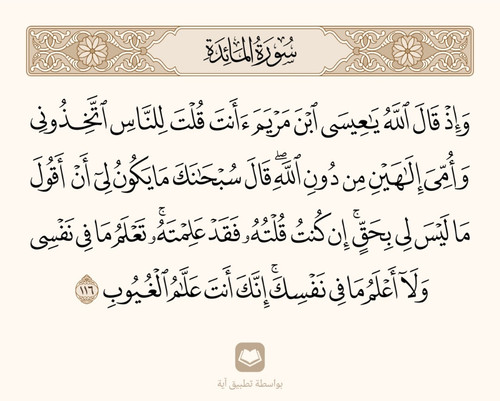 سُورَةُ المَائِدَة
وَإِذۡ قَالَ ٱللَّهُ يَٰعِيسَى ٱبۡنَ مَرۡيَمَ ءَأَنتَ قُلۡتَ لِلنَّاسِ ٱتَّخِذُونِي
وَأُمِّيَ إِلَٰهَيۡنِ مِن دُونِ ٱللَّهِۖ قَالَ سُبۡحَٰنَكَ مَا يَكُونُ لِيٓ أَنۡ أَقُولَ
مَا لَيۡسَ لِي بِحَقٍّۚ إِن كُنتُ قُلۡتُهُۥ فَقَدۡ عَلِمۡتَهُۥۚ تَعۡلَمُ مَا فِي نَفۡسِي
وَلَآ أَعۡلَمُ مَا فِي نَفۡسِكَۚ إِنَّكَ أَنتَ عَلَّٰمُ ٱلۡغُيُوبِ ١١٦
بواسطة تطبيق آية